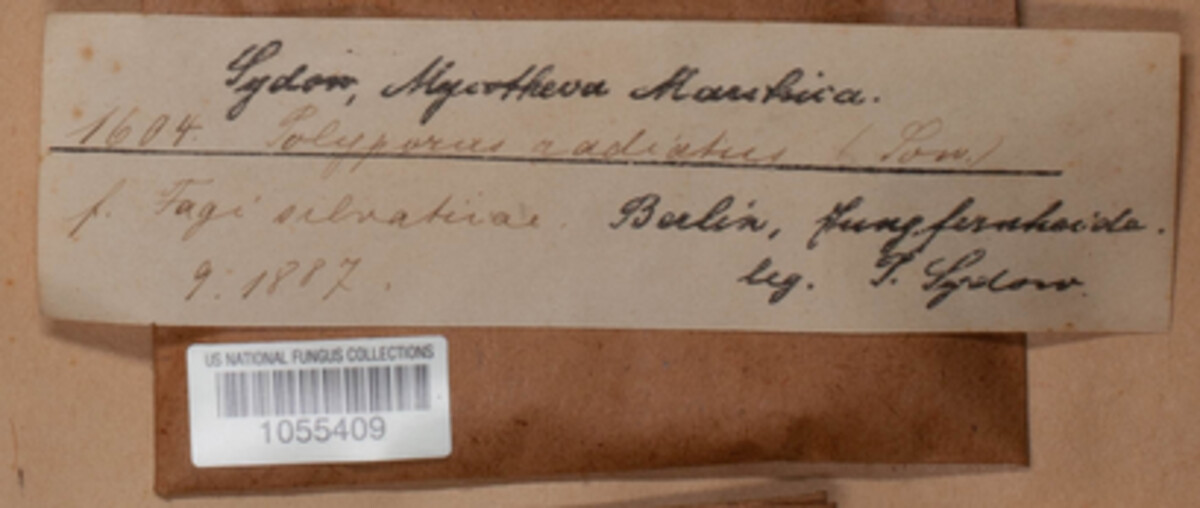 Sydow, Mycotheca Marchica.
1604. Polyporus radiatus (Sow.)
f. Fagi silvaticae. Berlin, Jungfernheide.
9. 1887. leg. P. Sydow.
US NATIONAL FUNGUS COLLECTIONS
1055409